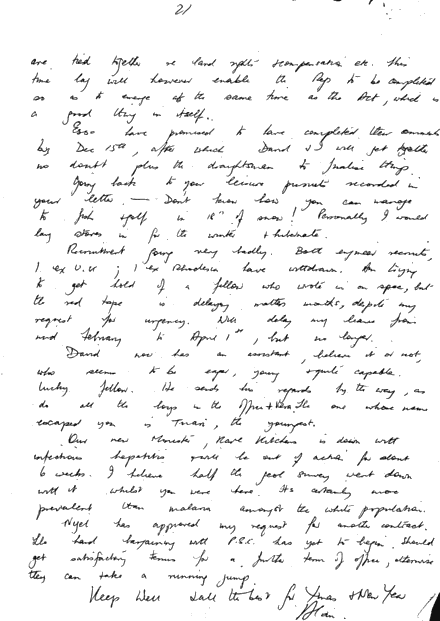 21
are tied together re land rights & compensation etc. This
time lag will however enable the Regs to be completed
so as to emerge at the same time as the Act, which is
a good thing in itself.
Esso have promised to have completed their
by Dec 15th, after which David & I will get together
no doubt plus the draughtsmen to finalise things.
Going back to your leisure pursuits recorded in
your letter. — Don't know how you can manage
to fish in 18" of snow! Personally I would
lay stores in for the winter & hibernate.
Recruitment going very badly. Both engineer recruits,
1 ex U.K; 1 ex Rhodesia have withdrawn. Am trying
to get hold of a fellow who wrote in on spec, but
the red tape is delaying matters months, despite my
request for urgency. Will delay my leave from
mid February to April 1st, but no longer.
David now has an assistant, believe it or not,
who seems to be eager, young & quite capable.
Lucky fellow. He sends his regards by the way, as
do all the boys in the office & the one whose name
escaped you is , the youngest.
Our new Minister, Dave is down with
infectious hepatitis & will be out of action for about
6 weeks. I believe half the geol survey went down
with it whilst you were here. Its certainly more
prevalent than malaria amongst the white population.
Nigel has approved my request for another contract.
The hard bargaining with P.S.C. has yet to begin. Should
get satisfactory terms for a further term of office, otherwise
they can take a running jump.
Keep Well & all the best for Xmas & New Year
Alan.